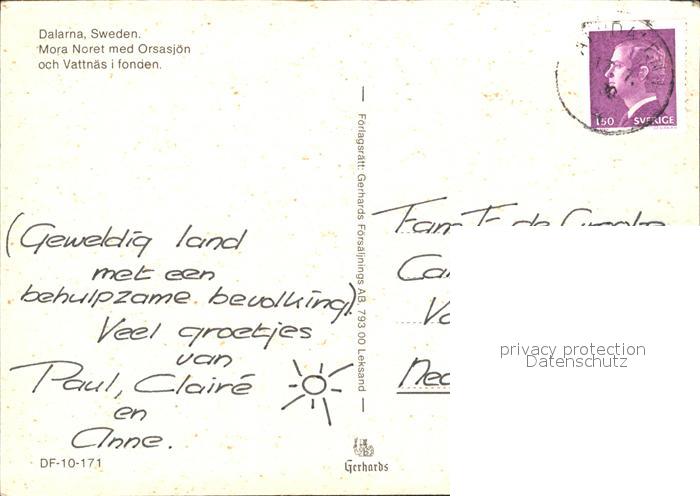 Dalarna, Sweden.
Mora Noret med Orsasjön
och Vattnäs i fonden.
150 SVERIGE
Förlagsrätt: Gerhards Försäljnings AB, 793 00 Leksand
(Geweldig land
met een
behulpzame bevolking).
Veel groetjes
van
Paul, Clairé
en
Anne.
Fam. T. de
privacy protection
Datenschutz
DF-10-171
Gerhards